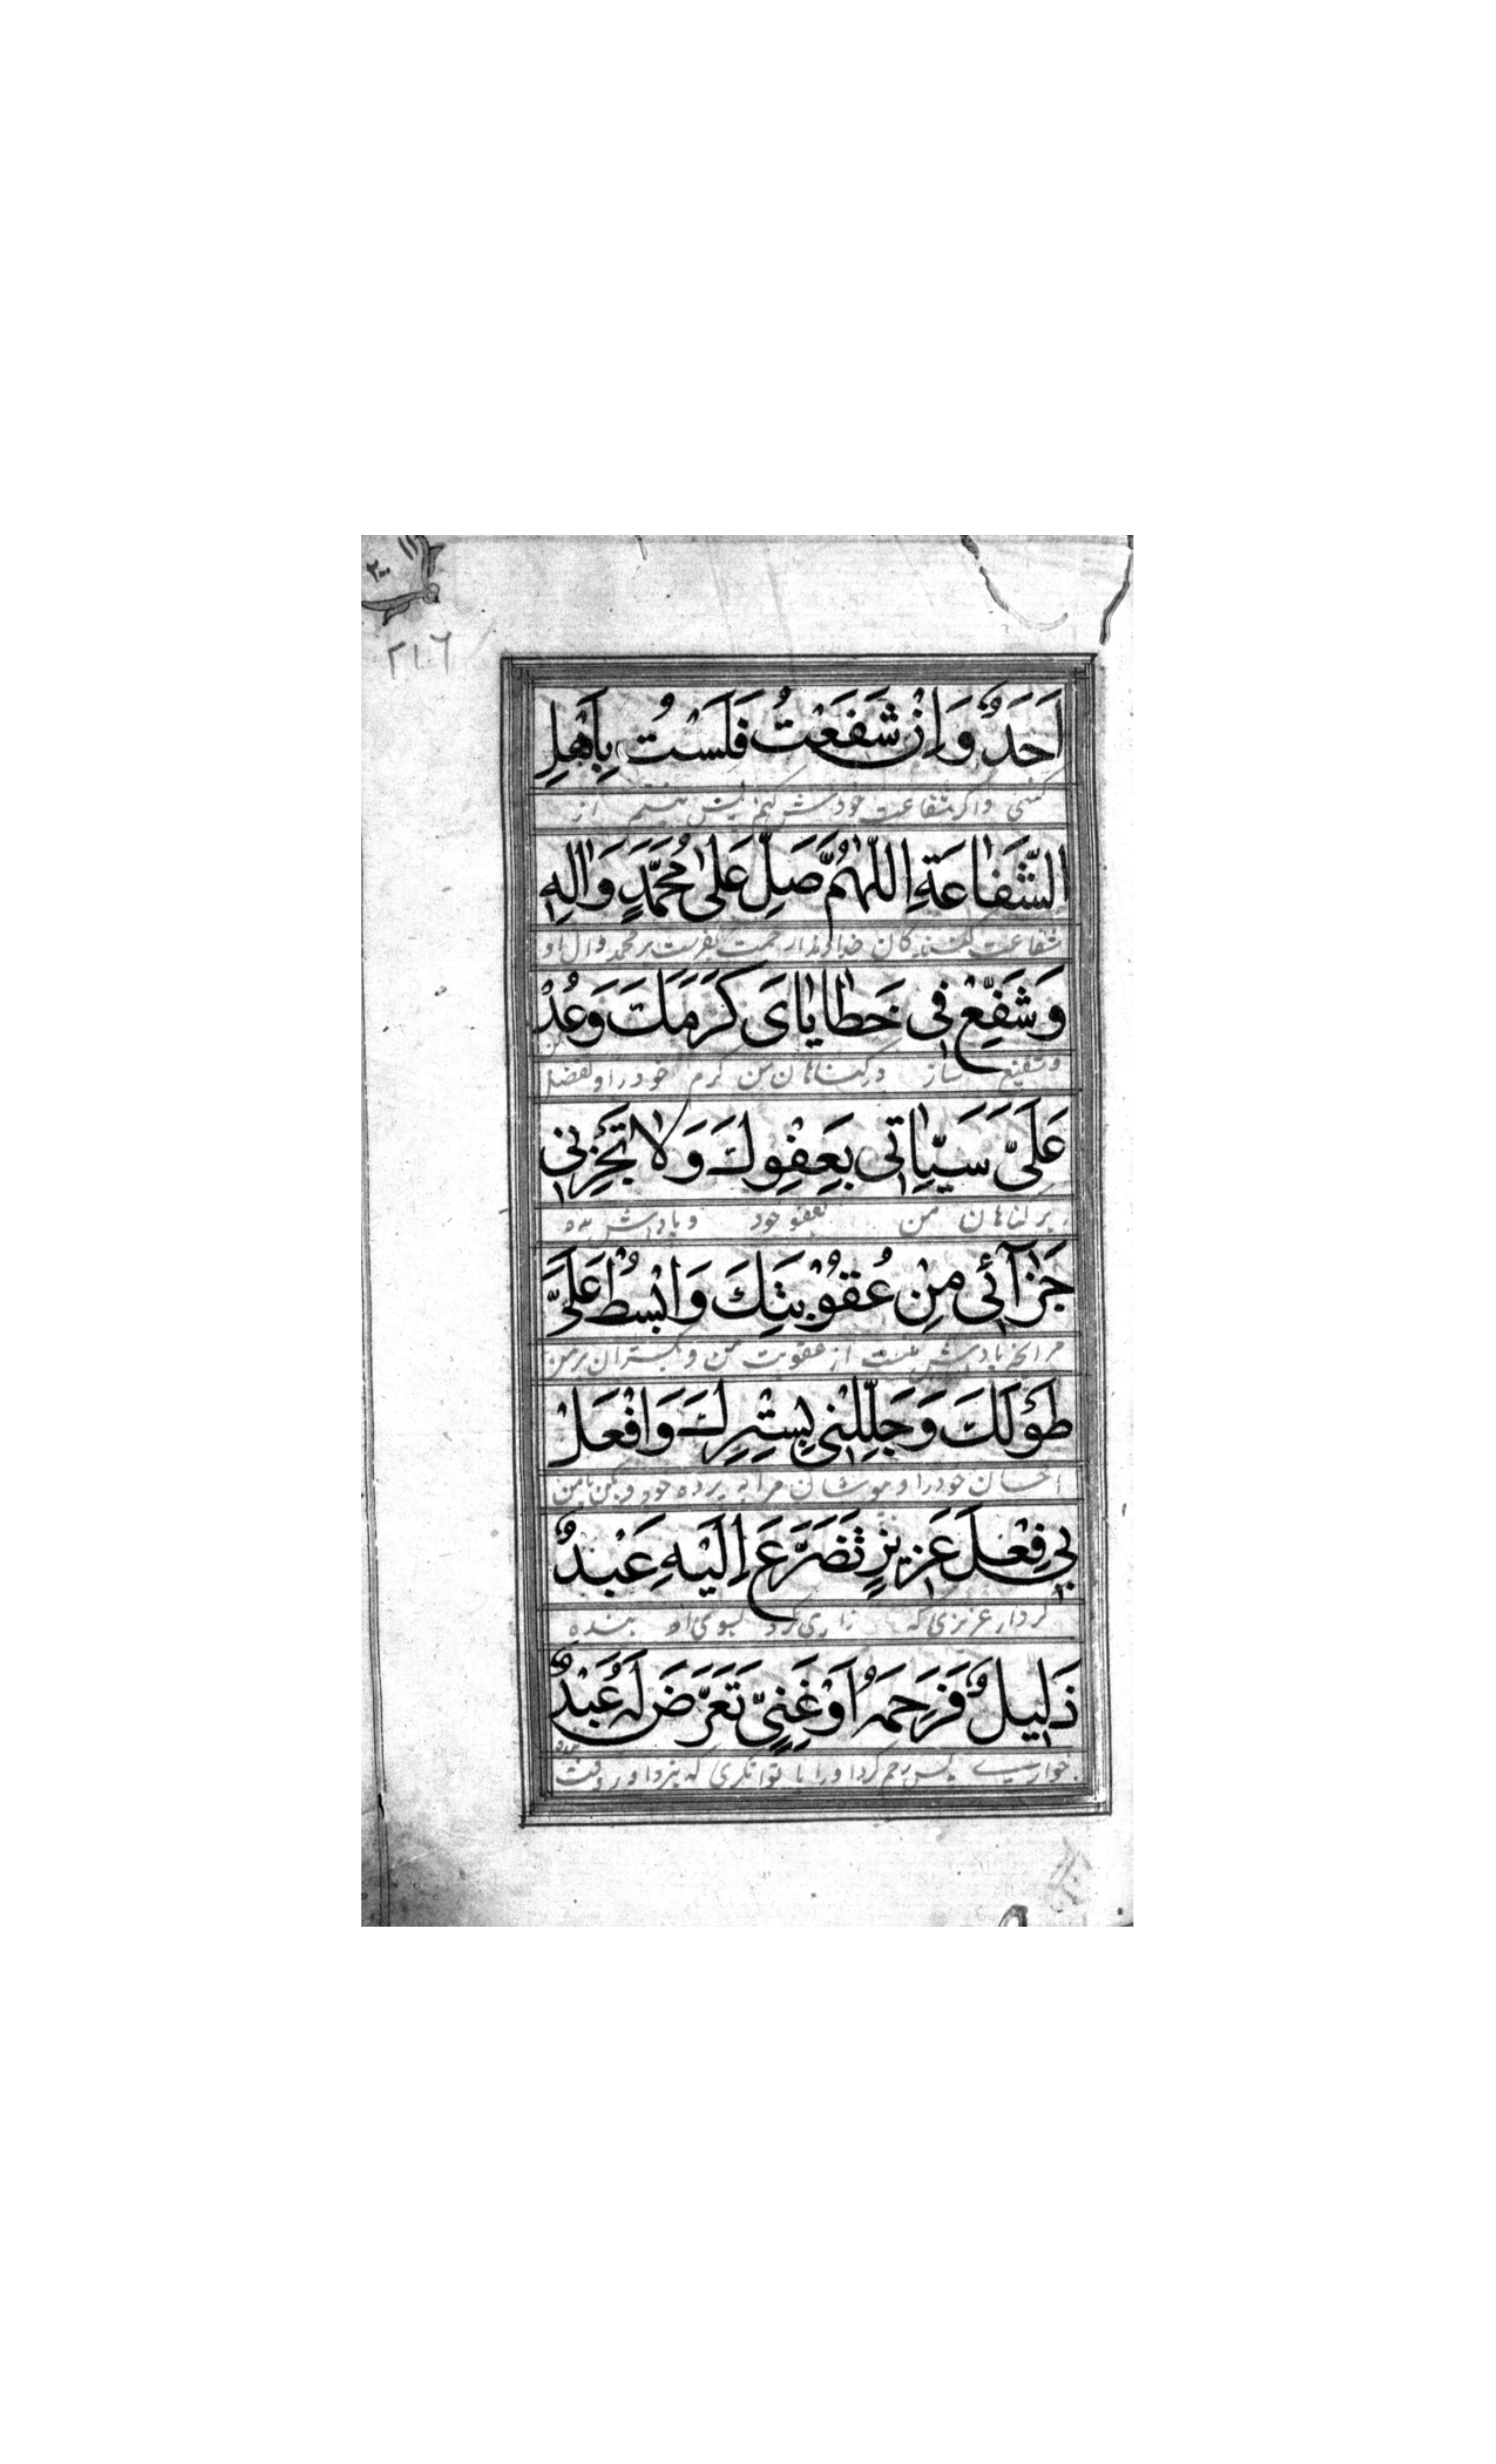 ٢٠٠
٢١٦
اَحَدٌ وَاِنْ شَفَعْتُ فَلَسْتُ بِاَهْلِ
کسی واکر شفاعت خودش کنم پس نیستم از
الشَّفَاعَةِ اللّٰهُمَّ صَلِّ عَلٰى مُحَمَّدٍ وَاٰلِهِ
شفاعت کنندکان خداوندا رحمت بفرست بر محمد وال او
وَشَفِّعْ فِى خَطَايَاىَ كَرَمَكَ وَعُدْ
وشفیع ساز در کناهان من کرم خود را وتفضل کن
عَلَىَّ سَيِّاٰتِى بِعَفْوِكَ وَلَا تَجْزِنِى
بر کناهان من بعفو خود و پاداش مده
جَزَآئِى مِنْ عُقُوْبَتِكَ وَابْسُطْ عَلَىَّ
مرا پاداش از عقوبت من و بکستران بر من
طَوْلَكَ وَجَلِّلْنِى بِسِتْرِكَ وَافْعَلْ
احسان خود را و بپوشان مرا به پرده خود و بکن با من
بِى فِعْلَ عَزِيزٍ تَضَرَّعَ اِلَيْهِ عَبْدٌ
کردار عزیزی که زاری کرد بسوی او بنده
ذَلِيلٌ فَرَحِمَهُ اَوْ غَنِىٍّ تَعَرَّضَ لَهُ عَبْدٌ
خوار پس رحم کرد او را یا توانکری که بنزد او رفت بنده